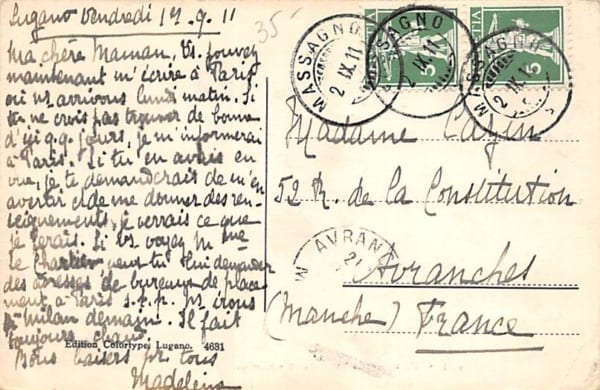 Lugano Vendredi 1 9. 11
35-
Ma chère Maman, Vs. pouvez
maintenant m'écrire à Paris
où ns arrivons lundi matin. Si
tu ne crois pas trouver de bonne
d'ici q.q. jours, je m'informerai
à Paris. Si tu en avais en
vue, je te demanderais de m'en
avertir et de me donner des ren-
seignements, je verrais ce que
je ferais. Si vs voyez Mme
le Chartier veux tu lui demander
des adresses de bureaux de place-
ment à Paris s.v.p. Ns irons
à Milan demain. Il fait
toujours chaud.
Bons baisers pr tous
Madeleine
Edition Colortype, Lugano. 4631
MASSAGNO
2 IX.11
MASSAGNO
2 IX.11
MASSAGNO
2 IX.1
HELVETIA
5
5
Madame
52 R. de la Constitution
AVRAN
21
Avranches
(Manche) France